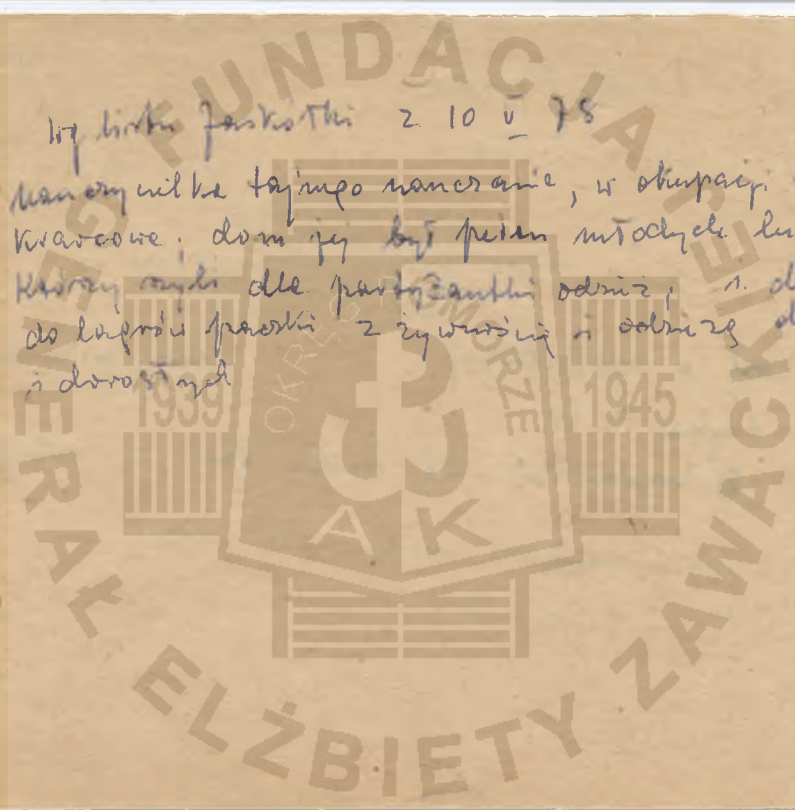 Wg listu Jaskółki z 10 V 78
nauczycielka tajnego nauczania, w okupacji
krawcowa; dom jej był pełen młodych lu
którzy szyli dla partyzantki odzież, i. d
do łagrów paczki z żywnością i odzieżą d
i dorosłych
FUNDACJA
GENERAŁ ELŻBIETY ZAWACKIEJ
OKRĘG POMORZE
1939
1945
AK